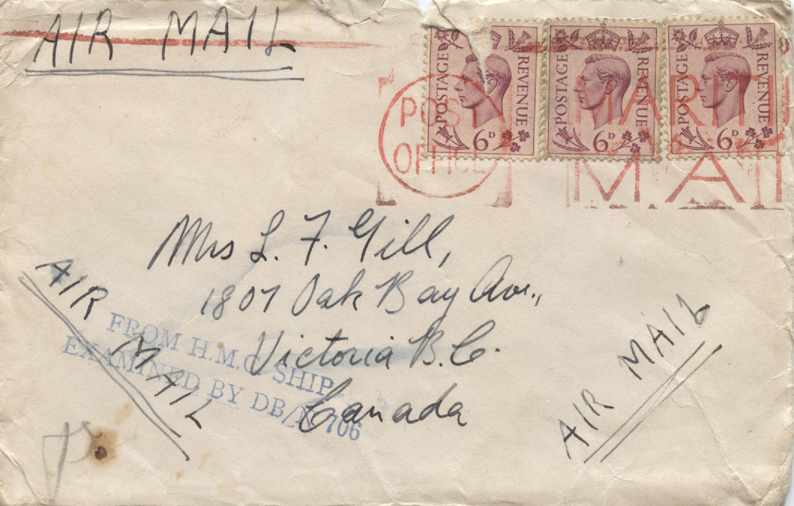 AIR MAIL
POSTAGE REVENUE 6D
POSTAGE REVENUE 6D
POSTAGE REVENUE 6D
POST
OFFICE
MARITI
MAI
Mrs L. F. Gill,
1807 Oak Bay Ave.,
Victoria B.C.
Canada
AIR MAIL
FROM H.M.C. SHIP
EXAMINED BY DB/ 706
AIR MAIL